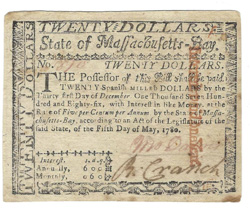 TWENTY DOLLARS.
State of Massachusetts-Bay.
No. TWENTY DOLLARS.
THE Possessor of this Bill shall be paid
TWENTY Spanish milled DOLLARS by the
Thirty first Day of December One Thousand Seven Hun-
dred and Eighty-six, with Interest in like Money, at the
Rate of Five per Centum per Annum by the State of Massa-
chusetts-Bay, according to an Act of the Legislature of the
said State, of the Fifth Day of May, 1780.
Interest. s. d. q.
Annually, 6 0 0
Monthly, 0 6 0
R. Cranch